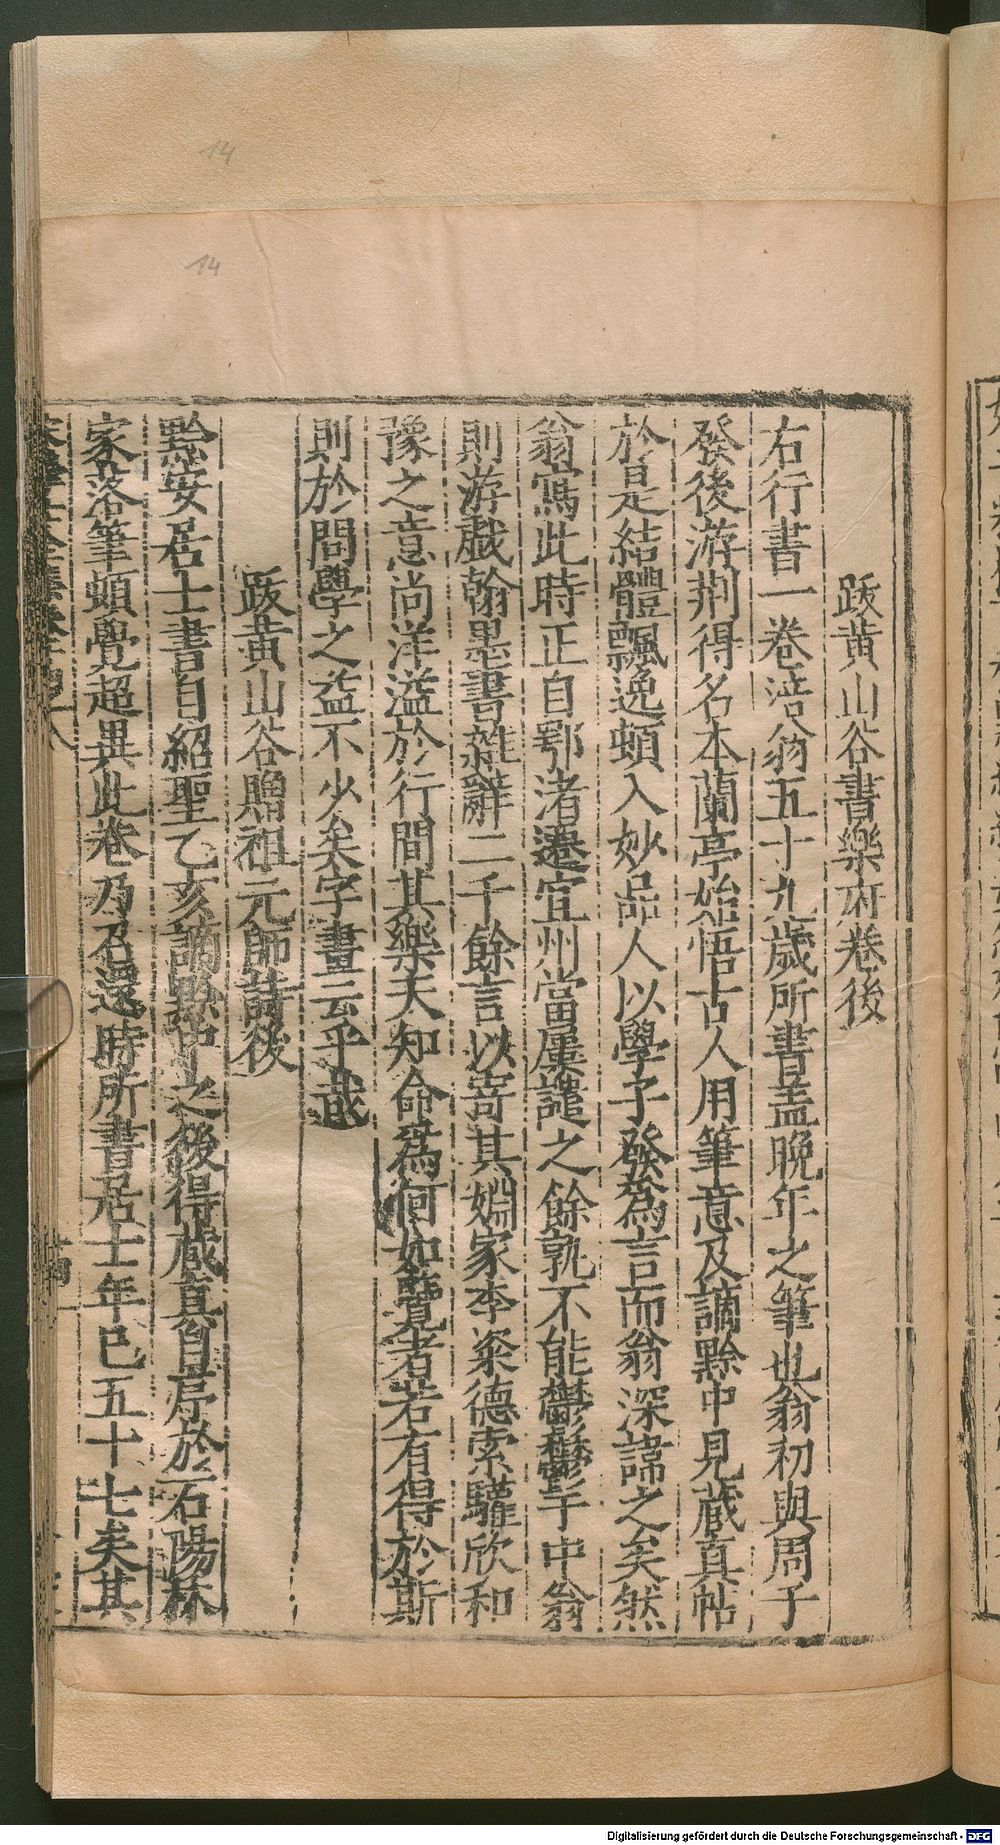 14
14
跋黄山谷書樂府卷後
右行書一卷涪翁五十九歲所書盖晚年之筆也翁初與周子
發後游荆得名本蘭亭始悟古人用筆意及謫黔中見蔵真帖
於是結體飄逸頓入妙品人以學子發爲言而翁深諱之矣然
翁寫此時正自鄂渚遷宜州當屢譴之餘孰不能鬱鬱于中翁
則游戲翰墨書雜辭二千餘言以寄其婣家李粢德索驩欣和
豫之意尚洋溢於行間其樂天知命爲何如覽者若有得於斯
則於問學之益不少矣字畫云乎哉
跋黄山谷贈祖元師詩後
黔安居士書自紹聖乙亥謫黔中之後得蔵真自序於石陽林
家落筆頓覺超異此卷乃召還時所書居士年已五十七矣其
Digitalisierung gefördert durch die Deutsche Forschungsgemeinschaft - DFG